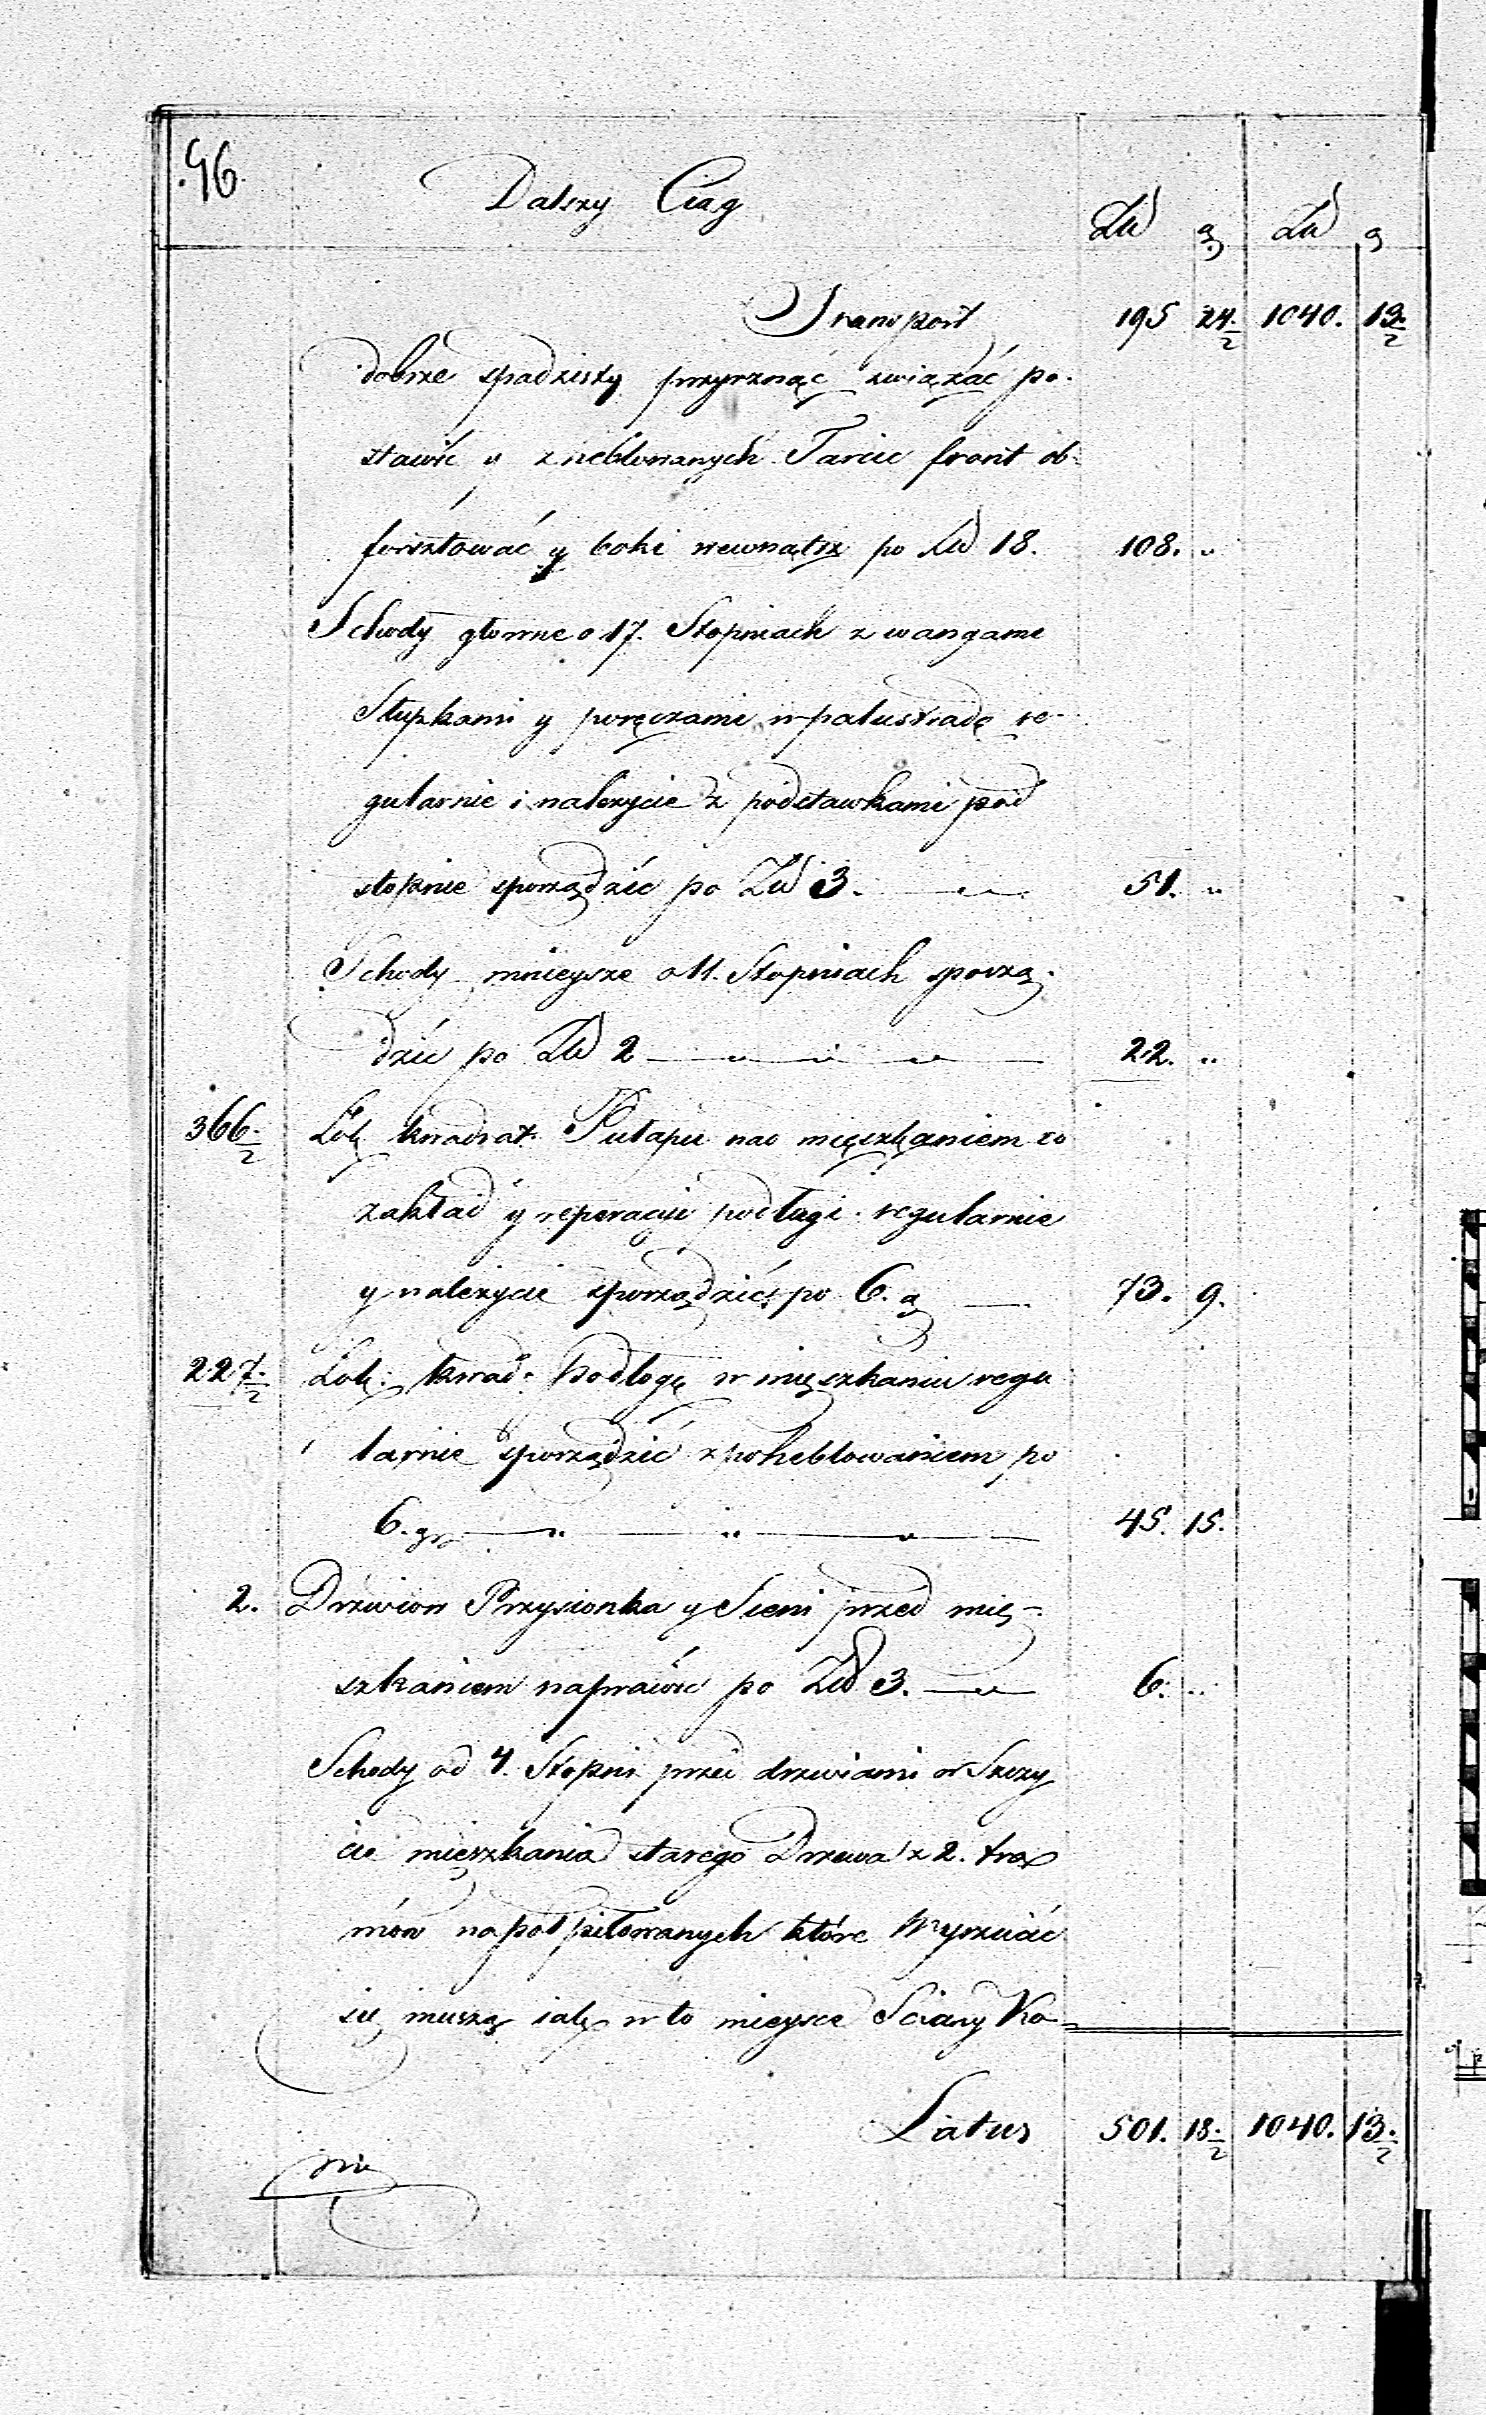 96.
Dalszy Ciąg
Złł g Złł g
Transport 195 24½ 1040. 13½
dobrze spadzisty przyrznąć związać po-
stawić y z heblowanych Tarcic front ob-
forsztować y boki wewnątrz po Złł 18. 108. "
Schody głowne o 17. Stopniach z wangami
Słupkami y poręczami w palustradę re-
gularnie i należycie z podstawkami pod
stopnie sporządzić po Złł 3. — " — 51. "
Schody mnieysze o 11. Stopniach sporzą-
dzić po Złł 2 — " — " — " — 22. "
366½ Łok: kwadrat: Pułapu nad mięszkaniem
zakład y reperacyi podługi regularnie
y należycie sporządzić po 6. g — 73. 9.
227½ Łok: kwad: Podłogę w mięszkaniu regu
larnie sporządzić z poheblowaniem po
6. gr. — " — " — " — 45. 15.
2. Drzwiow Przysionka y Sieni przed mię-
szkaniem naprawić po Złł 3. — " — 6. "
Schody od 4. Stopni przed drzwiami w Szczy
cie mięszkania starego Drzewa z 2. tra
mów na poł piłowanych które Wyrzucić
się muszą w to mieysce Sciany Ko-
Latus 501. 18½ 1040. 13½